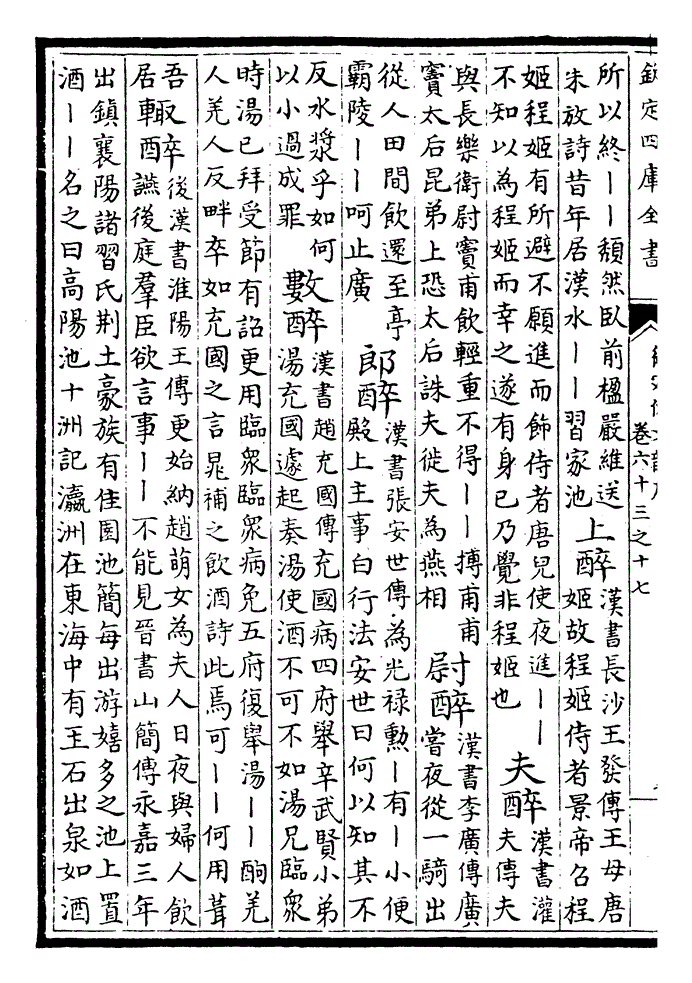 欽定四庫全書
卷六十三之十七
所以終——頽然臥前楹嚴維送
朱放詩昔年居漢水——習家池
上醉
漢書長沙王發傳王母唐
姬故程姬侍者景帝召程
姬程姬有所避不願進而飾侍者唐兒使夜進——
不知以為程姬而幸之遂有身已乃覺非程姬也
夫醉
漢書灌
夫傳夫
與長樂衛尉竇甫飲輕重不得——搏甫甫
竇太后昆弟上恐太后誅夫徙夫為燕相
尉醉
漢書李廣傳廣
嘗夜從一騎出
從人田間飲還至亭
霸陵——呵止廣
郎醉
漢書張安世傳為光祿勲—有—小便
殿上主事白行法安世曰何以知其不
反水漿乎如何
以小過成罪
數醉
漢書趙充國傳充國病四府舉辛武賢小弟
湯充國遽起奏湯使酒不可不如湯兄臨衆
時湯已拜受節有詔更用臨衆臨衆病免五府復舉湯——酗羌
人羌人反畔卒如充國之言晁補之飲酒詩此焉可——何用葺
吾
居
輒醉
後漢書淮陽王傳更始納趙萌女為夫人日夜與婦人飲
讌後庭羣臣欲言事——不能見晉書山簡傳永嘉三年
出鎮襄陽諸習氏荆土豪族有佳園池簡每出游嬉多之池上置
酒——名之曰高陽池十洲記瀛洲在東海中有玉石出泉如酒